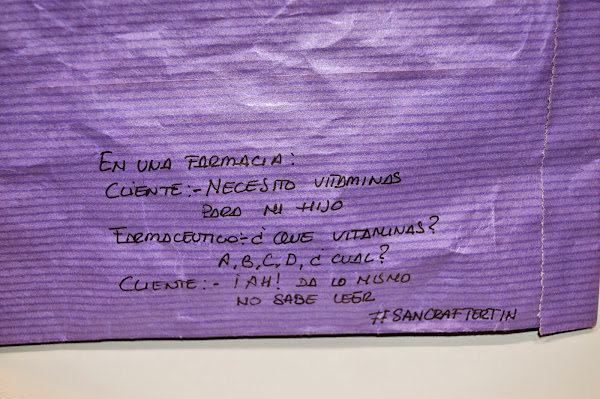 EN UNA FARMACIA:
CLIENTE:- NECESITO VITAMINAS
PARA MI HIJO
FARMACEUTICO:-¿ QUE VITAMINAS?
A, B, C, D, ¿ CUAL?
CLIENTE:- ¡AH! DA LO MISMO
NO SABE LEER
#SANCRAFTERTIN